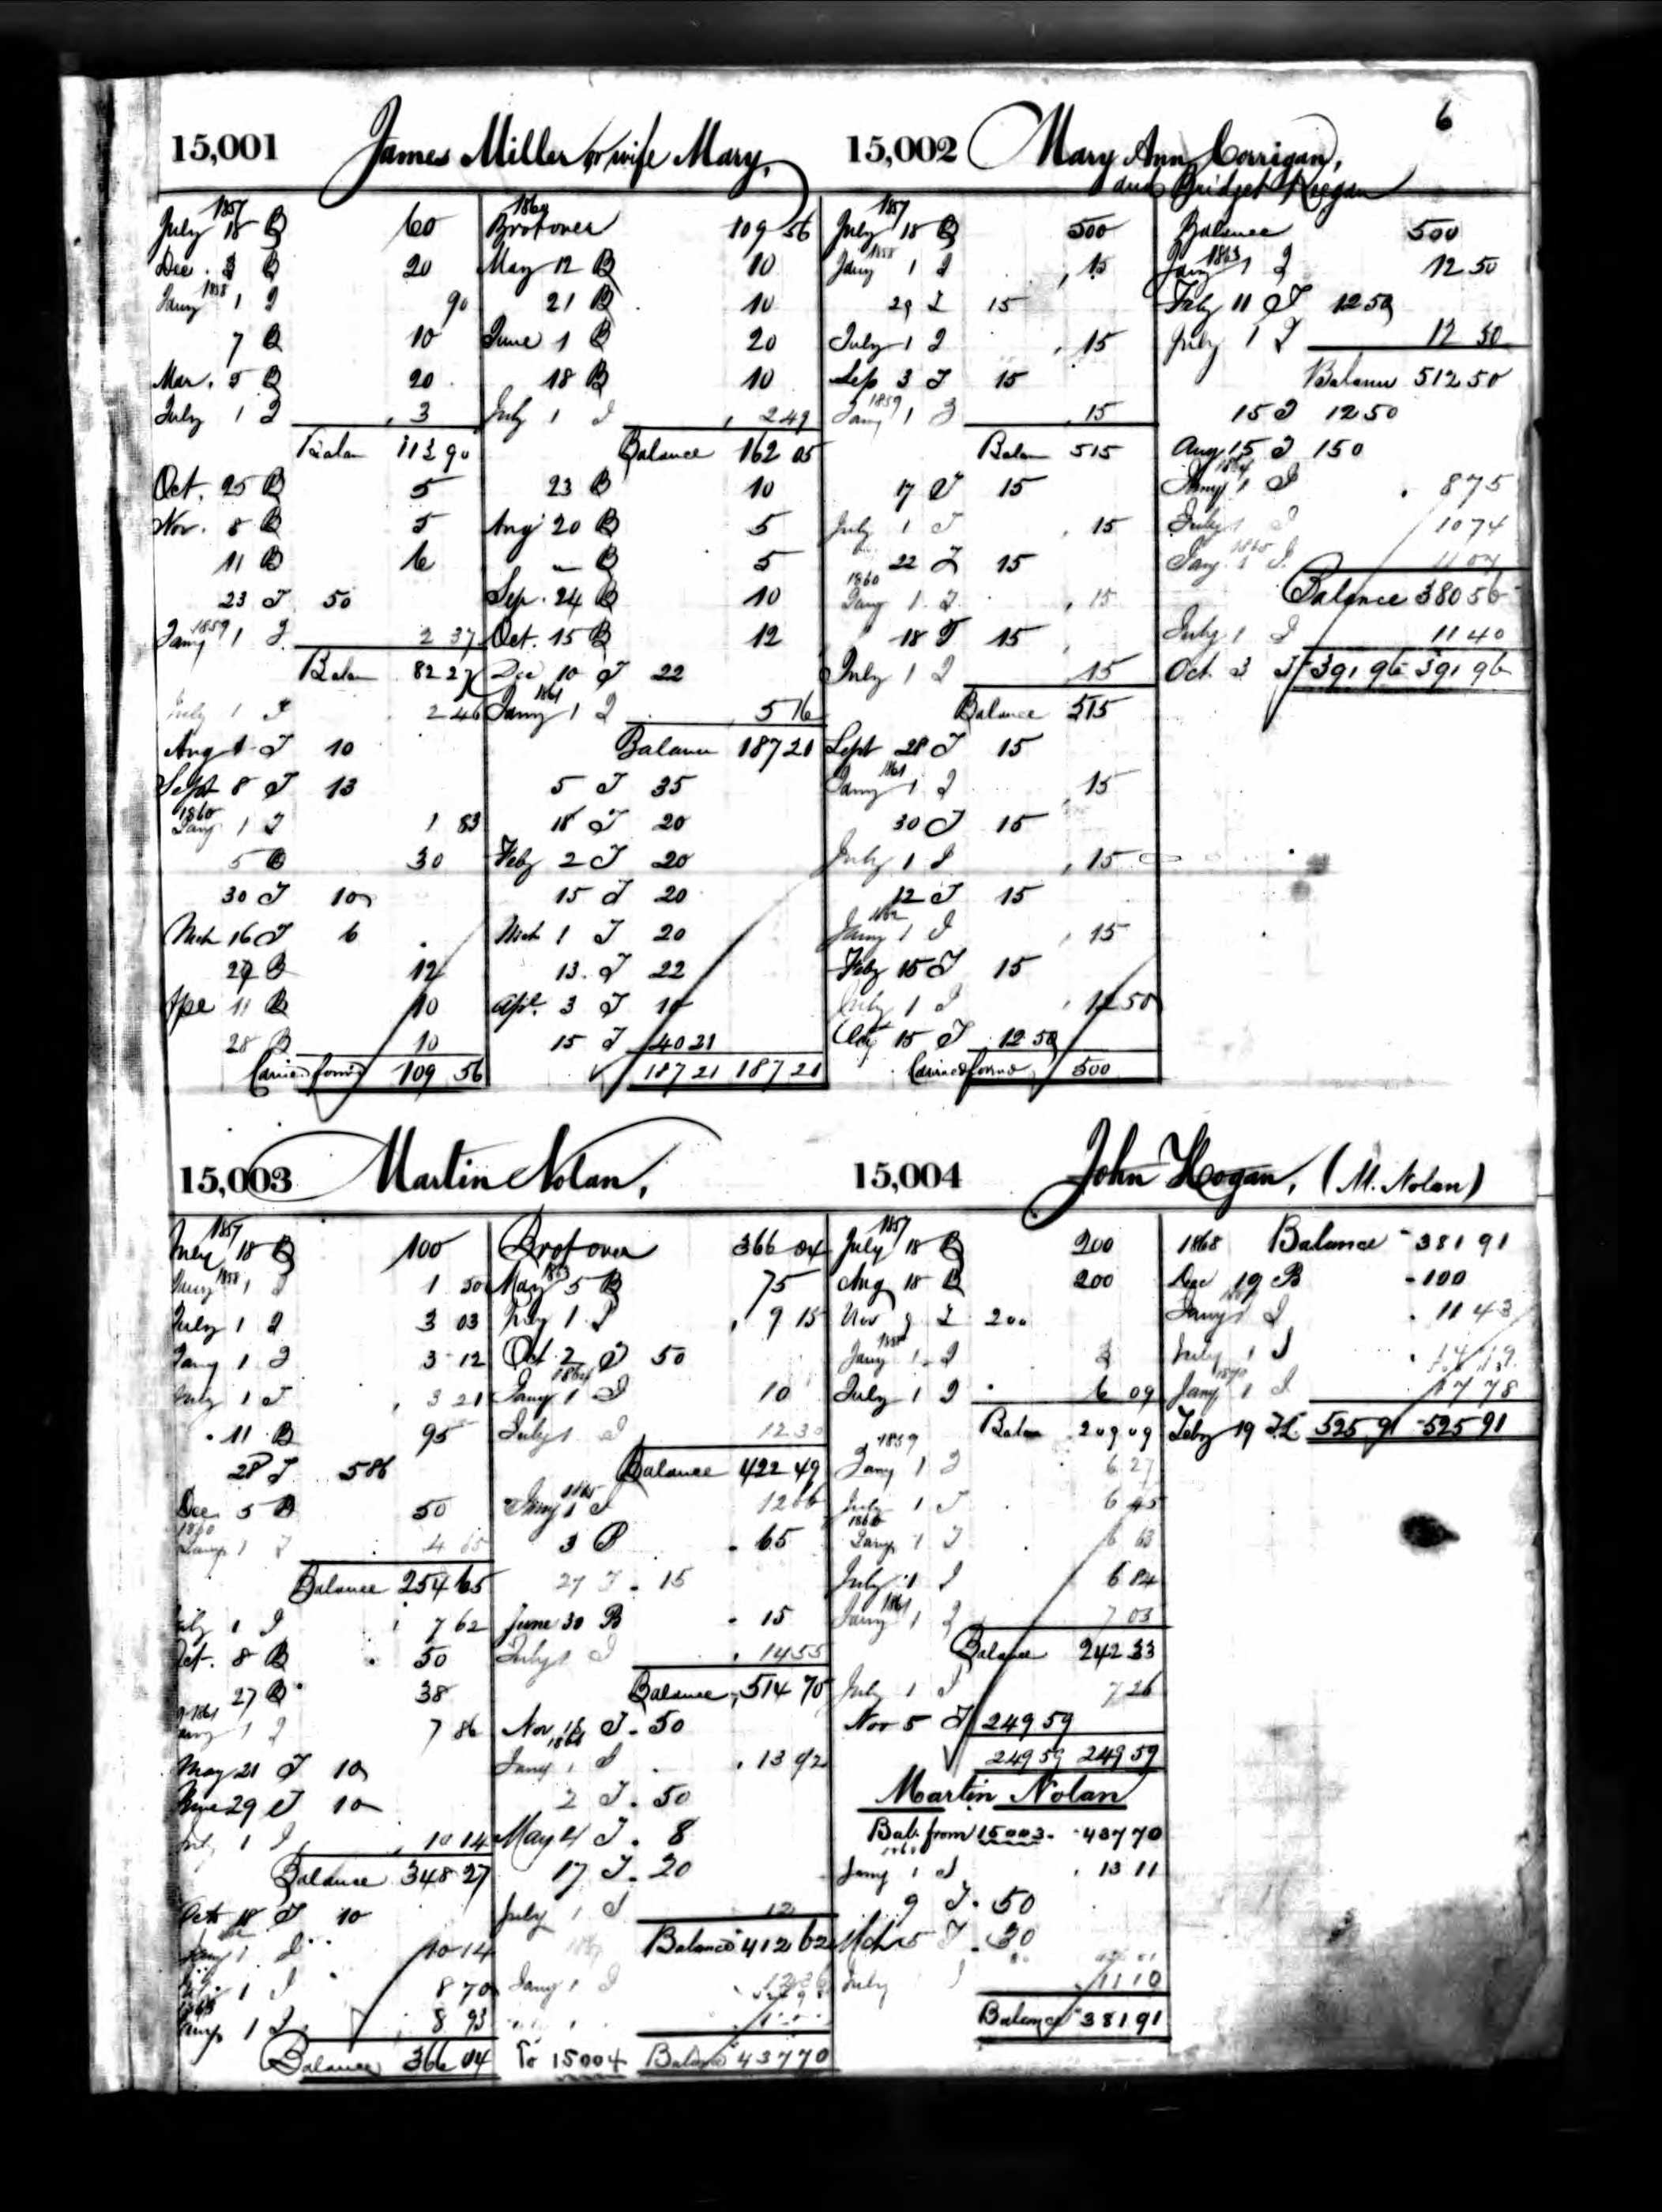 6
15,001 James Miller or wife Mary,
1857
July 18 B 60
Dec. 3 B 20
1858
Jany 1 I 90
7 B 10
Mar. 5 B 20
July 1 I 3
Balan 113 90
Oct. 25 B 5
Nov. 8 B 5
11 B 6
23 T 50
Jany 1859 1 I 2 37
Balan 82 27
July 1 I 2 46
Aug 1 T 10
Sept 8 T 13
1860
Jany 1 I 1 83
5 B 30
30 T 10
Mch 16 T 6
27 B 12
Ape 11 B 10
28 B 10
Carried forwd 109 56
1860
Brot over 109 56
May 12 B 10
21 B 10
June 1 B 20
18 B 10
July 1 I 2 49
Balance 162 05
23 B 10
Aug 20 B 5
" B 5
Sep. 24 B 10
Oct. 15 B 12
Dec 10 T 22
1861
Jany 1 I 5 16
Balance 187 21
5 T 35
18 T 20
Feby 2 T 20
15 T 20
Mch 1 T 20
13. T 22
Apl. 3 T 10
15 T 40 21
187 21 187 21
15,002 Mary Ann Corrigan,
and Bridget Keegan
1857
July 18 B 500
1858
Jany 1 I 15
29 T 15
July 1 I 15
Sep 3 T 15
1859
Jany 1 I 15
Balan 515
17 T 15
July 1 I 15
22 T 15
1860
Jany 1 I 15
18 T 15
July 1 I 15
Balance 515
Sept 28 T 15
1861
Jany 1 I 15
30 T 15
July 1 I 15
12 T 15
1862
Jany 1 I 15
Feby 15 T 15
July 1 I 12 50
15 T 12 50
Carried forwd 500
Balance 500
1863
Jany 1 I 12 50
Feby 11 T 12 50
July 1 I 12 50
Balance 512 50
15 T 12 50
Aug 15 T 150
1864
Jany 1 I 8 75
July 1 I 10 74
1865
Jany 1 I 11 07
Balance 380 56
July 1 I 11 40
Oct 3 T 391 96 391 96
15,003 Martin Nolan,
1857
July 18 B 100
1858
Jany 1 I 1 50
July 1 I 3 03
Jany 1 I 3 12
July 1 I 3 21
11 B 95
28 T 5 86
Dec 5 B 50
1860
Jany 1 I 4 65
Balance 254 65
July 1 I 7 62
Oct. 8 B 50
27 B 38
1861
Jany 1 I 7 86
May 21 T 10
June 29 T 10
July 1 I 10 14
Balance 348 27
Octr 18 T 10
Jany 1 I 10 14
July 1 I 8 70
1863
Jany 1 I 8 93
Balance 366 04
Brot over 366 04
1863
May 5 B 75
July 1 I 9 15
Oct 2 T 50
1864
Jany 1 I 10
July 1 I 12 30
Balance 422 49
1865
Jany 1 I 12 66
3 B 65
27 T 15
June 30 B 15
July 1 I 14 55
Balance 514 70
Nov 15 T 50
1866
Jany 1 I 13 92
2 T 50
May 4 T 8
17 T 20
July 1 I 12
Balance 412 62
1867
Jany 1 I
To 15004 Balance 437 70
15,004 John Hogan, (M. Nolan)
1857
July 18 B 200
Aug 18 B 200
Nov 9 T 200
1858
Jany 1 I 3
July 1 I 6 09
Balan 209 09
1859
Jany 1 I 6 27
July 1 I 6 45
1860
Jany 1 I 6 63
July 1 I 6 84
1861
Jany 1 I 7 03
Balance 242 33
July 1 I 7 26
Nov 5 T 249 59
249 59 249 59
Martin Nolan
Bal. from 15003. 437 70
Jany 1 I 13 11
9 T 50
Mch 5 T 30
July 1 I 11 10
Balance 381 91
1868 Balance 381 91
Dec 19 B 100
Jany 1 I 11 43
July 1 I 14 79
1870
Jany 1 I 17 78
Feby 19 T 525 91 525 91